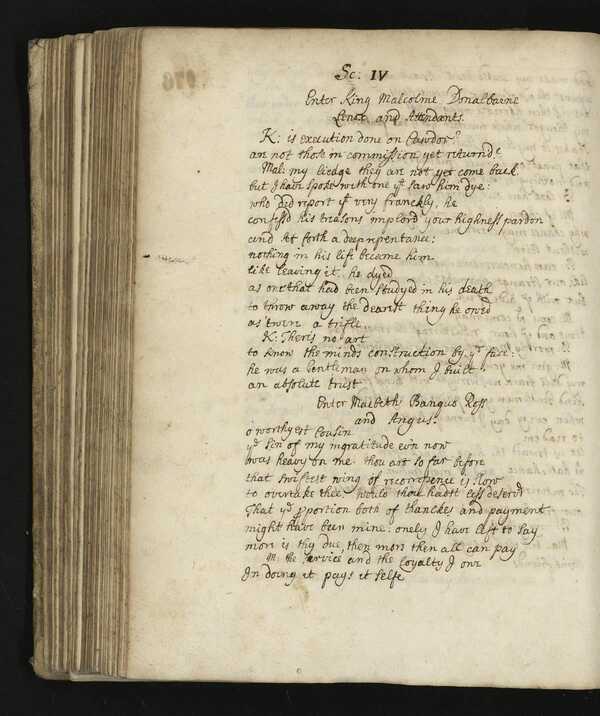 Sc: IV
Enter King Malcolme Donalbaine
Lenox and Attendants.
K: is execution done on Cawdor?
are not those in commission yet returnd?
Mal: my liedge they are not yet come back
but I have spoke with one yt saw him dye:
who did report yt very franckly, he
confessd his treasons implord your highness pardon
and set forth a deep repentance:
nothing in his life became him
like leaving it. he dyed
as one that had been studyed in his death
to throw away the dearest thing he owed
as 'twere a trifle.
K: There's no art
to know the minds construction by ye face:
he was a Gentleman on whom I built
an absolute trust
Enter Macbeth Banquo Ross
and Angus.
o worthyest Cousin
ye sin of my ingratitude even now
was heavy on me. thou art so far before
that swiftest wing of recompence is slow
to overtake thee. would thou hadst less deservd
That ye proportion both of thanckes and payment
might have been mine: onely I have left to say
more is thy due, then more then all can pay
M. the service and the Loyalty I owe
In doing it pays it selfe